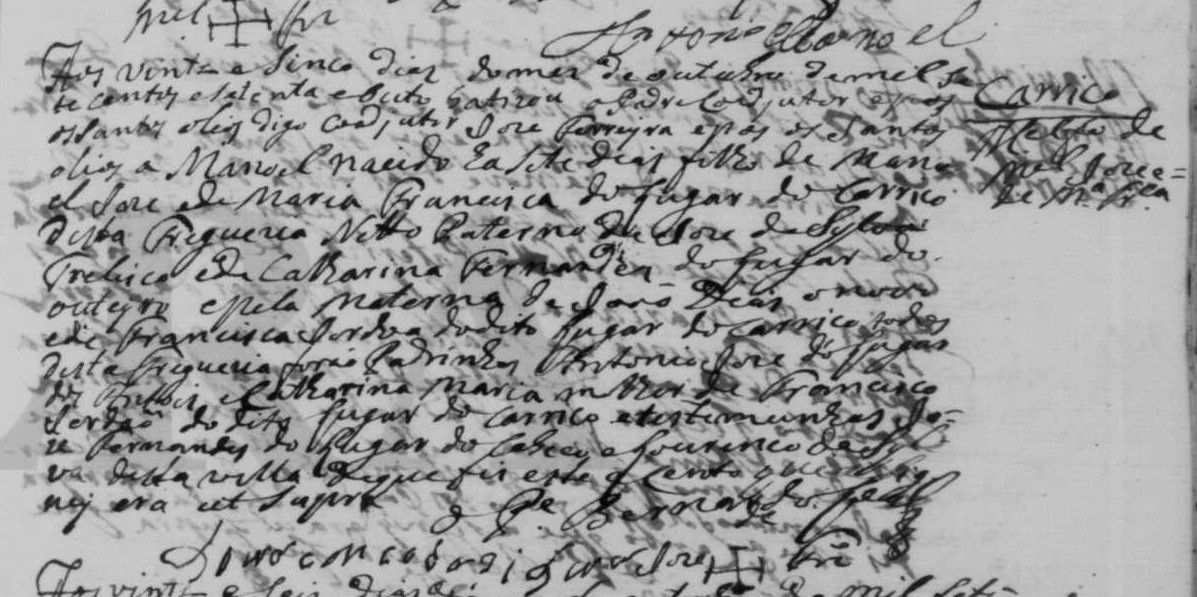 Mel fr
Antonio Manoel
Aos vinte e Sinco dias do mes de outubro de mil Se
te centos e setenta e batizou o Padre Coadjutor e pos
os Santos olios digo Coadjutor Jose Ferreyra e pos os Santos
olios a Manoel nacido a Sete dias filho de Mano
el Jose e de Maria Francisca do Lugar do Carrico
desta Freguezia Netto Paterno de Jose da Sylva
e de Catharina Fernandes do Lugar do
outeyro e pela Materna de João Dias o novo
e de Francisca do dito Lugar do Carrico todos
desta Freguezia forão Padrinhos Antonio Jose do Lugar
dos e Catharina Maria mulher de Francisco
Serdão do dito Lugar do Carrico e testemunhas Jo=
ze Fernandes do Lugar do e Lourenco da Syl
va desta villa de que fis este que asig
nej era ut Supra
O Pe Bernardo
de Jose fr
Aos vinte e Seis dias de mil Set
Carrico
Mel fo de
Mel Joze e=
de Ma Frca